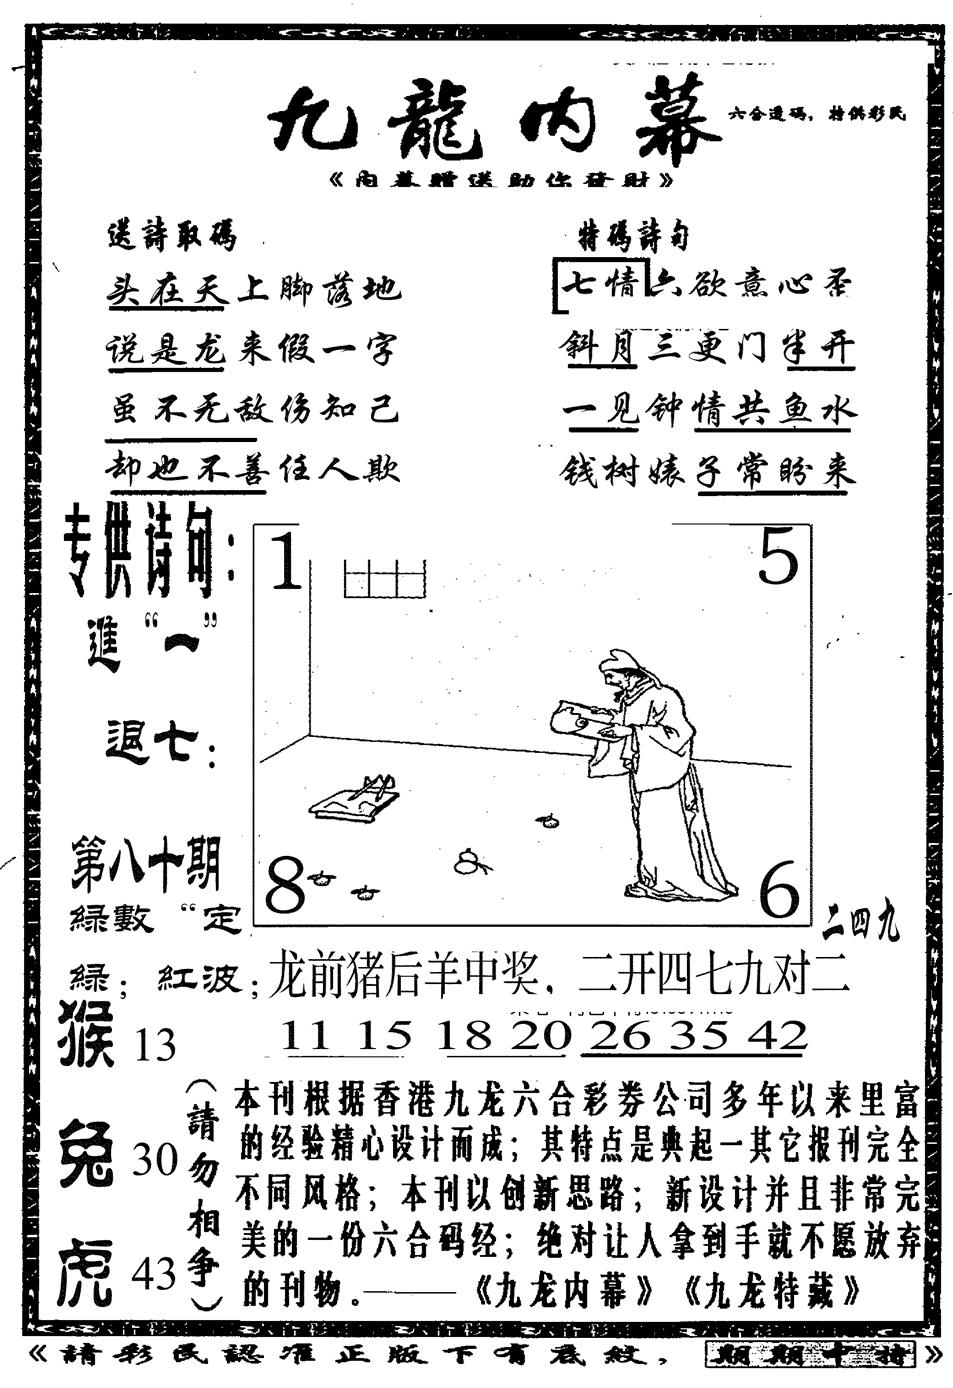 九龍内幕
六合透码，特供彩民
《內幕贈送助你發財》
送詩取碼
头在天上脚落地
说是龙来假一字
虽不无敌伤知己
却也不善任人欺
特碼詩句
七情六欲意心圣
斜月三更门半开
一见钟情共鱼水
钱树婊子常盼来
专供诗句：
進“一”
退七：
第八十期
綠數“定
綠；紅波；
猴 13
兔 30
虎 43
1
5
8
6
二四九
龙前猪后羊中奖．二开四七九对二
11 15 18 20 26 35 42
（請勿相争）
本刊根据香港九龙六合彩券公司多年以来里富
的经验精心设计而成；其特点是典起一其它报刊完全
不同风格；本刊以创新思路；新设计并且非常完
美的一份六合码经；绝对让人拿到手就不愿放弃
的刊物。———《九龙内幕》《九龙特藏》
《請彩民認准正版下有底紋，期期中特》